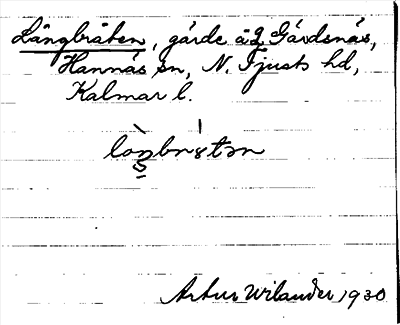 Långbråten, gärde å 2 Gärdsnäs,
Hannäs sn, N. Tjusts hd,
Kalmar l.
Artur Wilander 1930